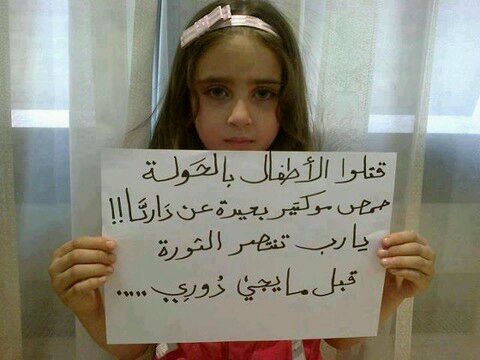 قتلوا الأطفال بالحَولة
حمص موكتير بعيدة عن دَاريَّا!!
يارب تنتصر الثورة
قبل مايجيْ دُورِي .....